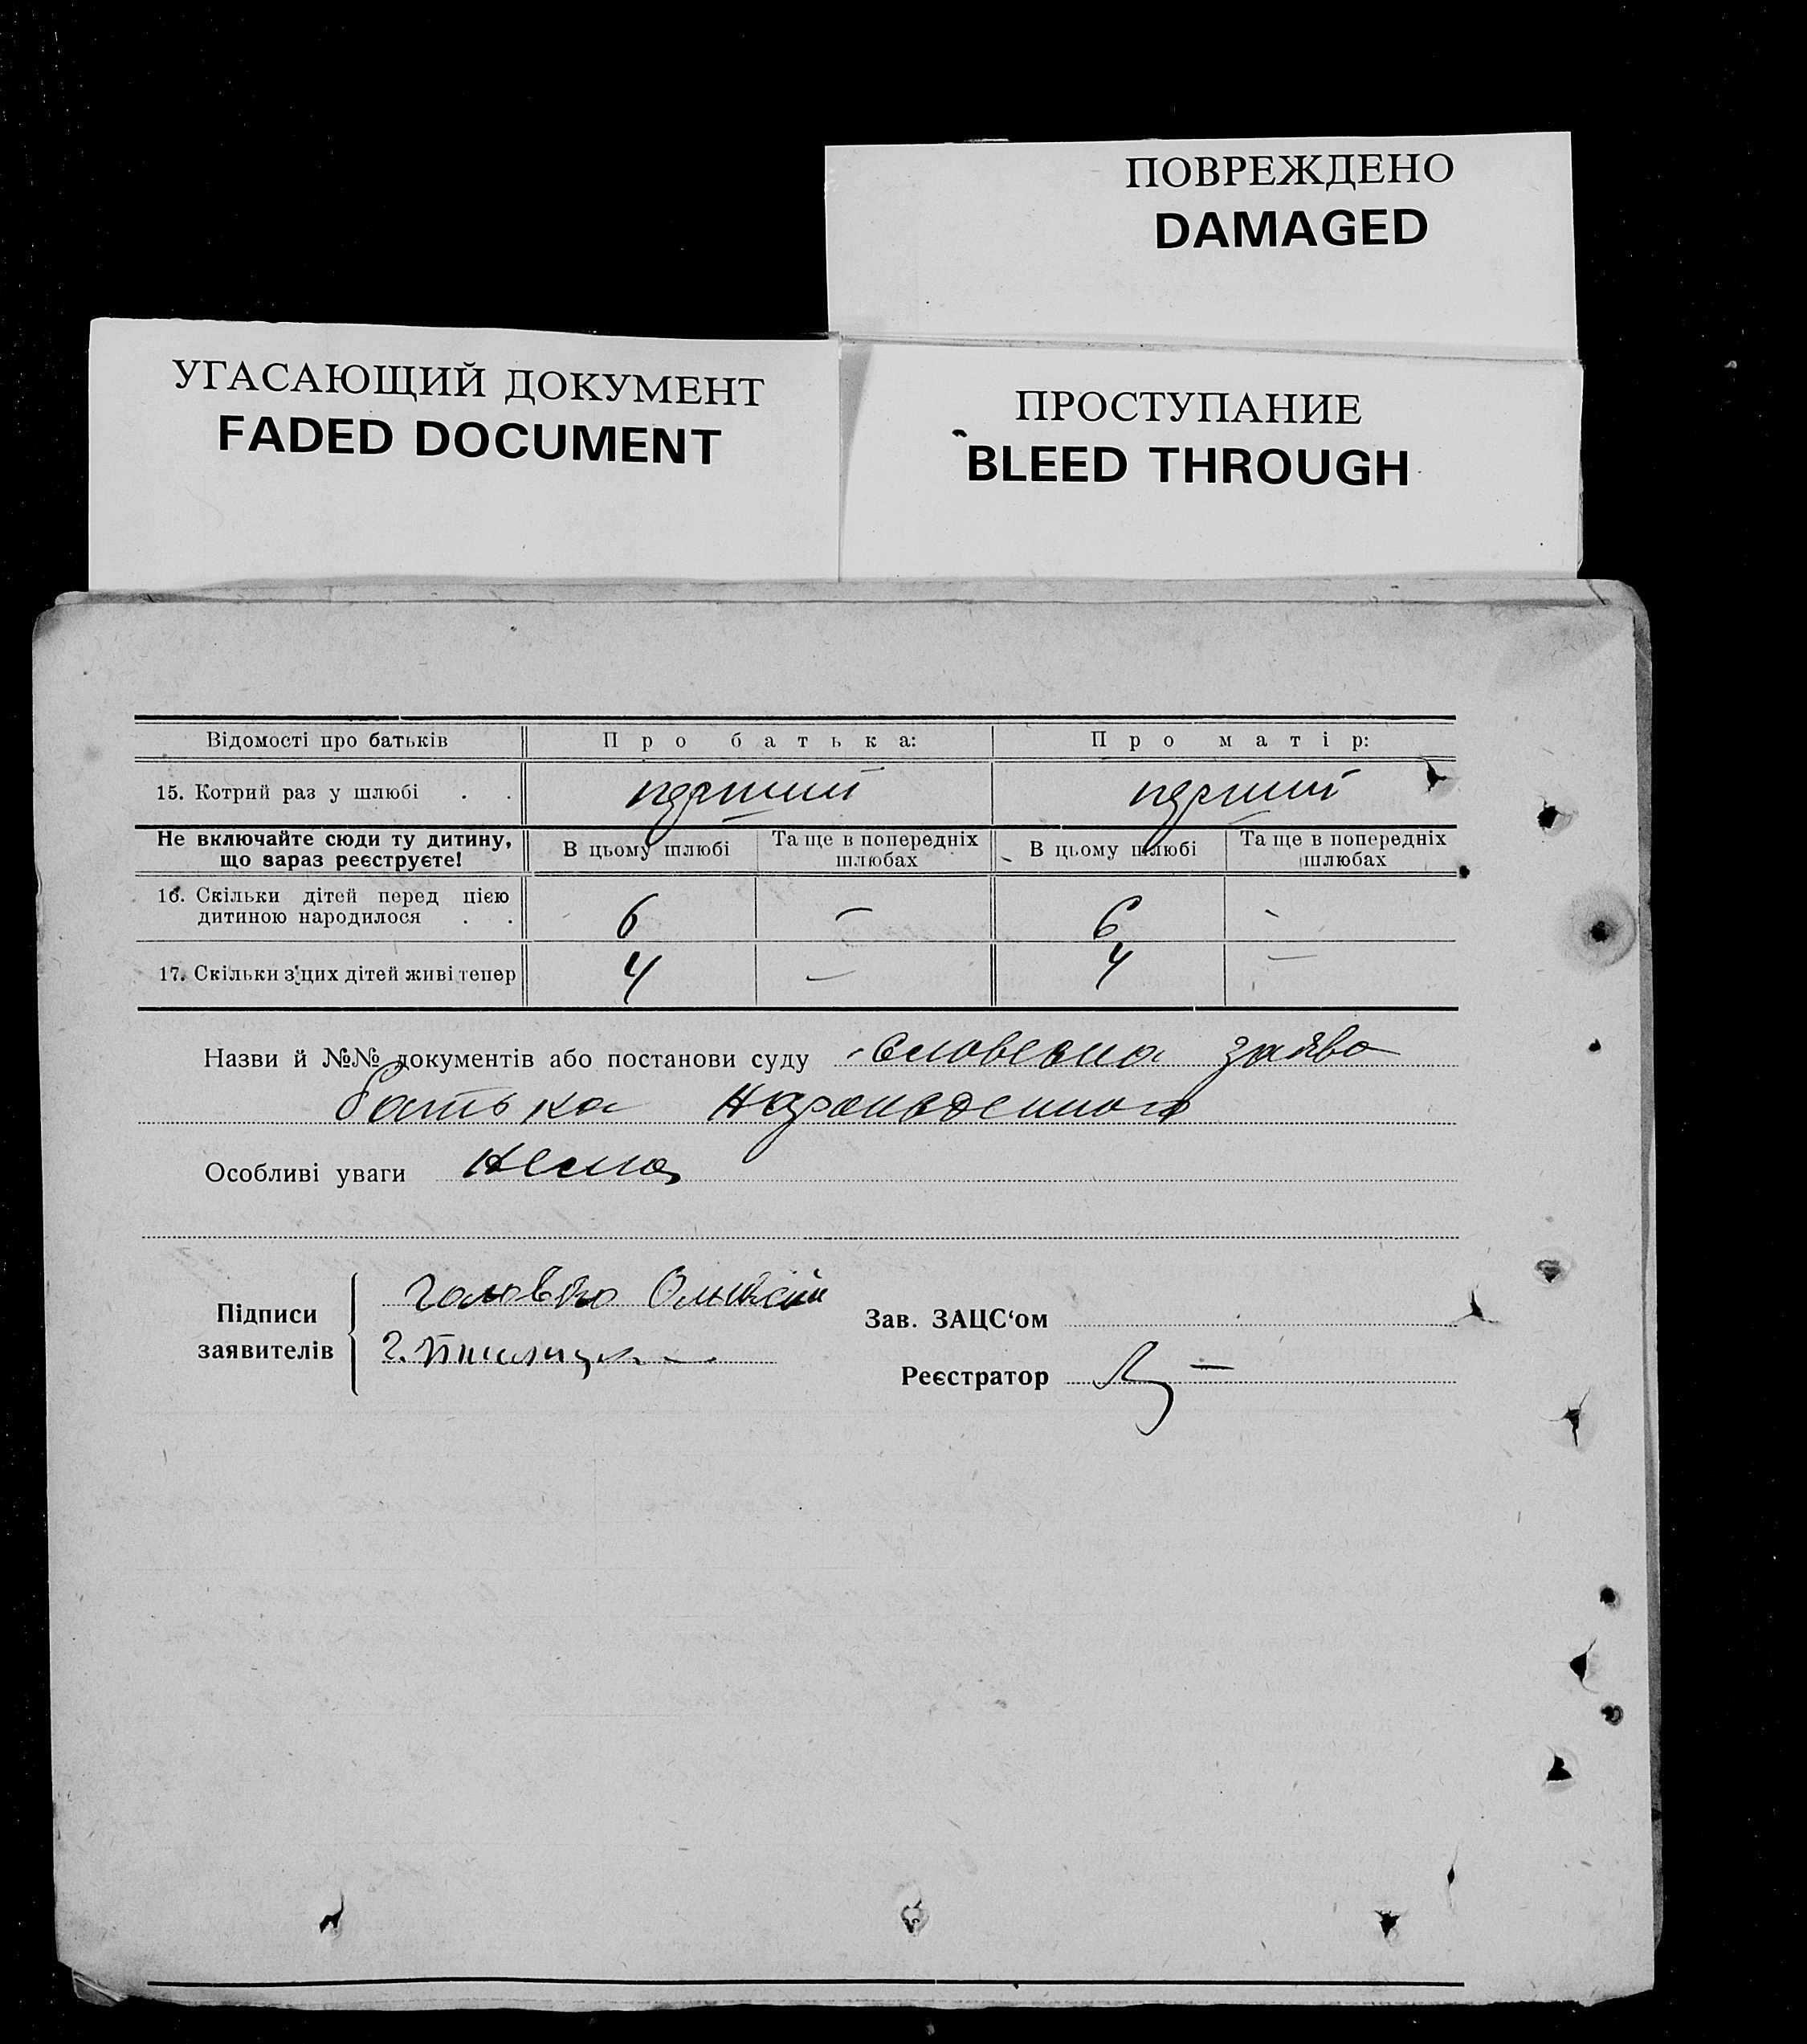 ПОВРЕЖДЕНО
DAMAGED
УГАСАЮЩИЙ ДОКУМЕНТ
FADED DOCUMENT
ПРОСТУПАНИЕ
BLEED THROUGH
Відомості про батьків Про батька: Про матір:
15. Котрий раз у шлюбі . . перший перший
Не включайте сюди ту дитину, що зараз реєструєте! В цьому шлюбі Та ще в попередніх шлюбах В цьому шлюбі Та ще в попередніх шлюбах
16. Скільки дітей перед цією дитиною народилося . . 6 — 6 -
17. Скільки з цих дітей живі тепер 4 — 4 —
Назви й №№ документів або постанови суду словесна заява
батька
Особливі уваги нема
Підписи заявителів
Головко
Зав. ЗАЦС‘ом
Реєстратор